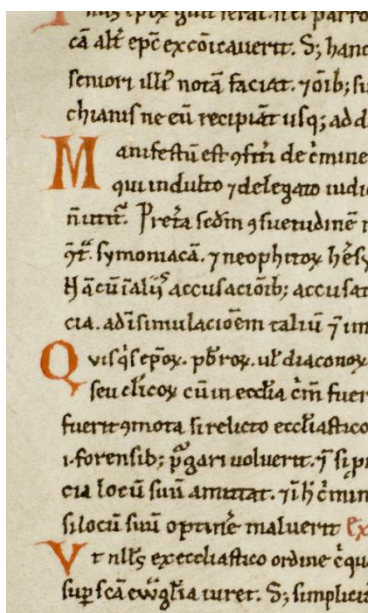 cā alt̄ ep̄c excōicauerit. S; hanc
seniori illi᷒ notā faciat. ⁊ōib; su
chianis ne eū recipiāt usq; ad d
Manifestū est ꝯfiti de c̄mine
qui indulto ⁊ delegato iudi
ꝯt̄. symoniacā. ⁊ neophitoꝝ hēsy
Nā cū ī aliis accusaciōib; accusat
cia. ad ī simulaciōem taliū ī im
Quisq̇s ep̄oꝝ. pb̄roꝝ. ul̄ diaconoꝝ
seu cl̄icoꝝ cū in eccl̄ia c̄m̄ fuer
fuerit ꝯmota si relicto eccl̄iastico
i forensib; p̄gari uoluerit. ī si pr
cia locū suū amittat. ⁊ī h̄ c̄min
si locū suū optinē maluerit Ex
Vt nll̄s ex eccl̄iastico ordine c̄qu
suꝑ sc̄a ewḡlia iuret. S; simplici